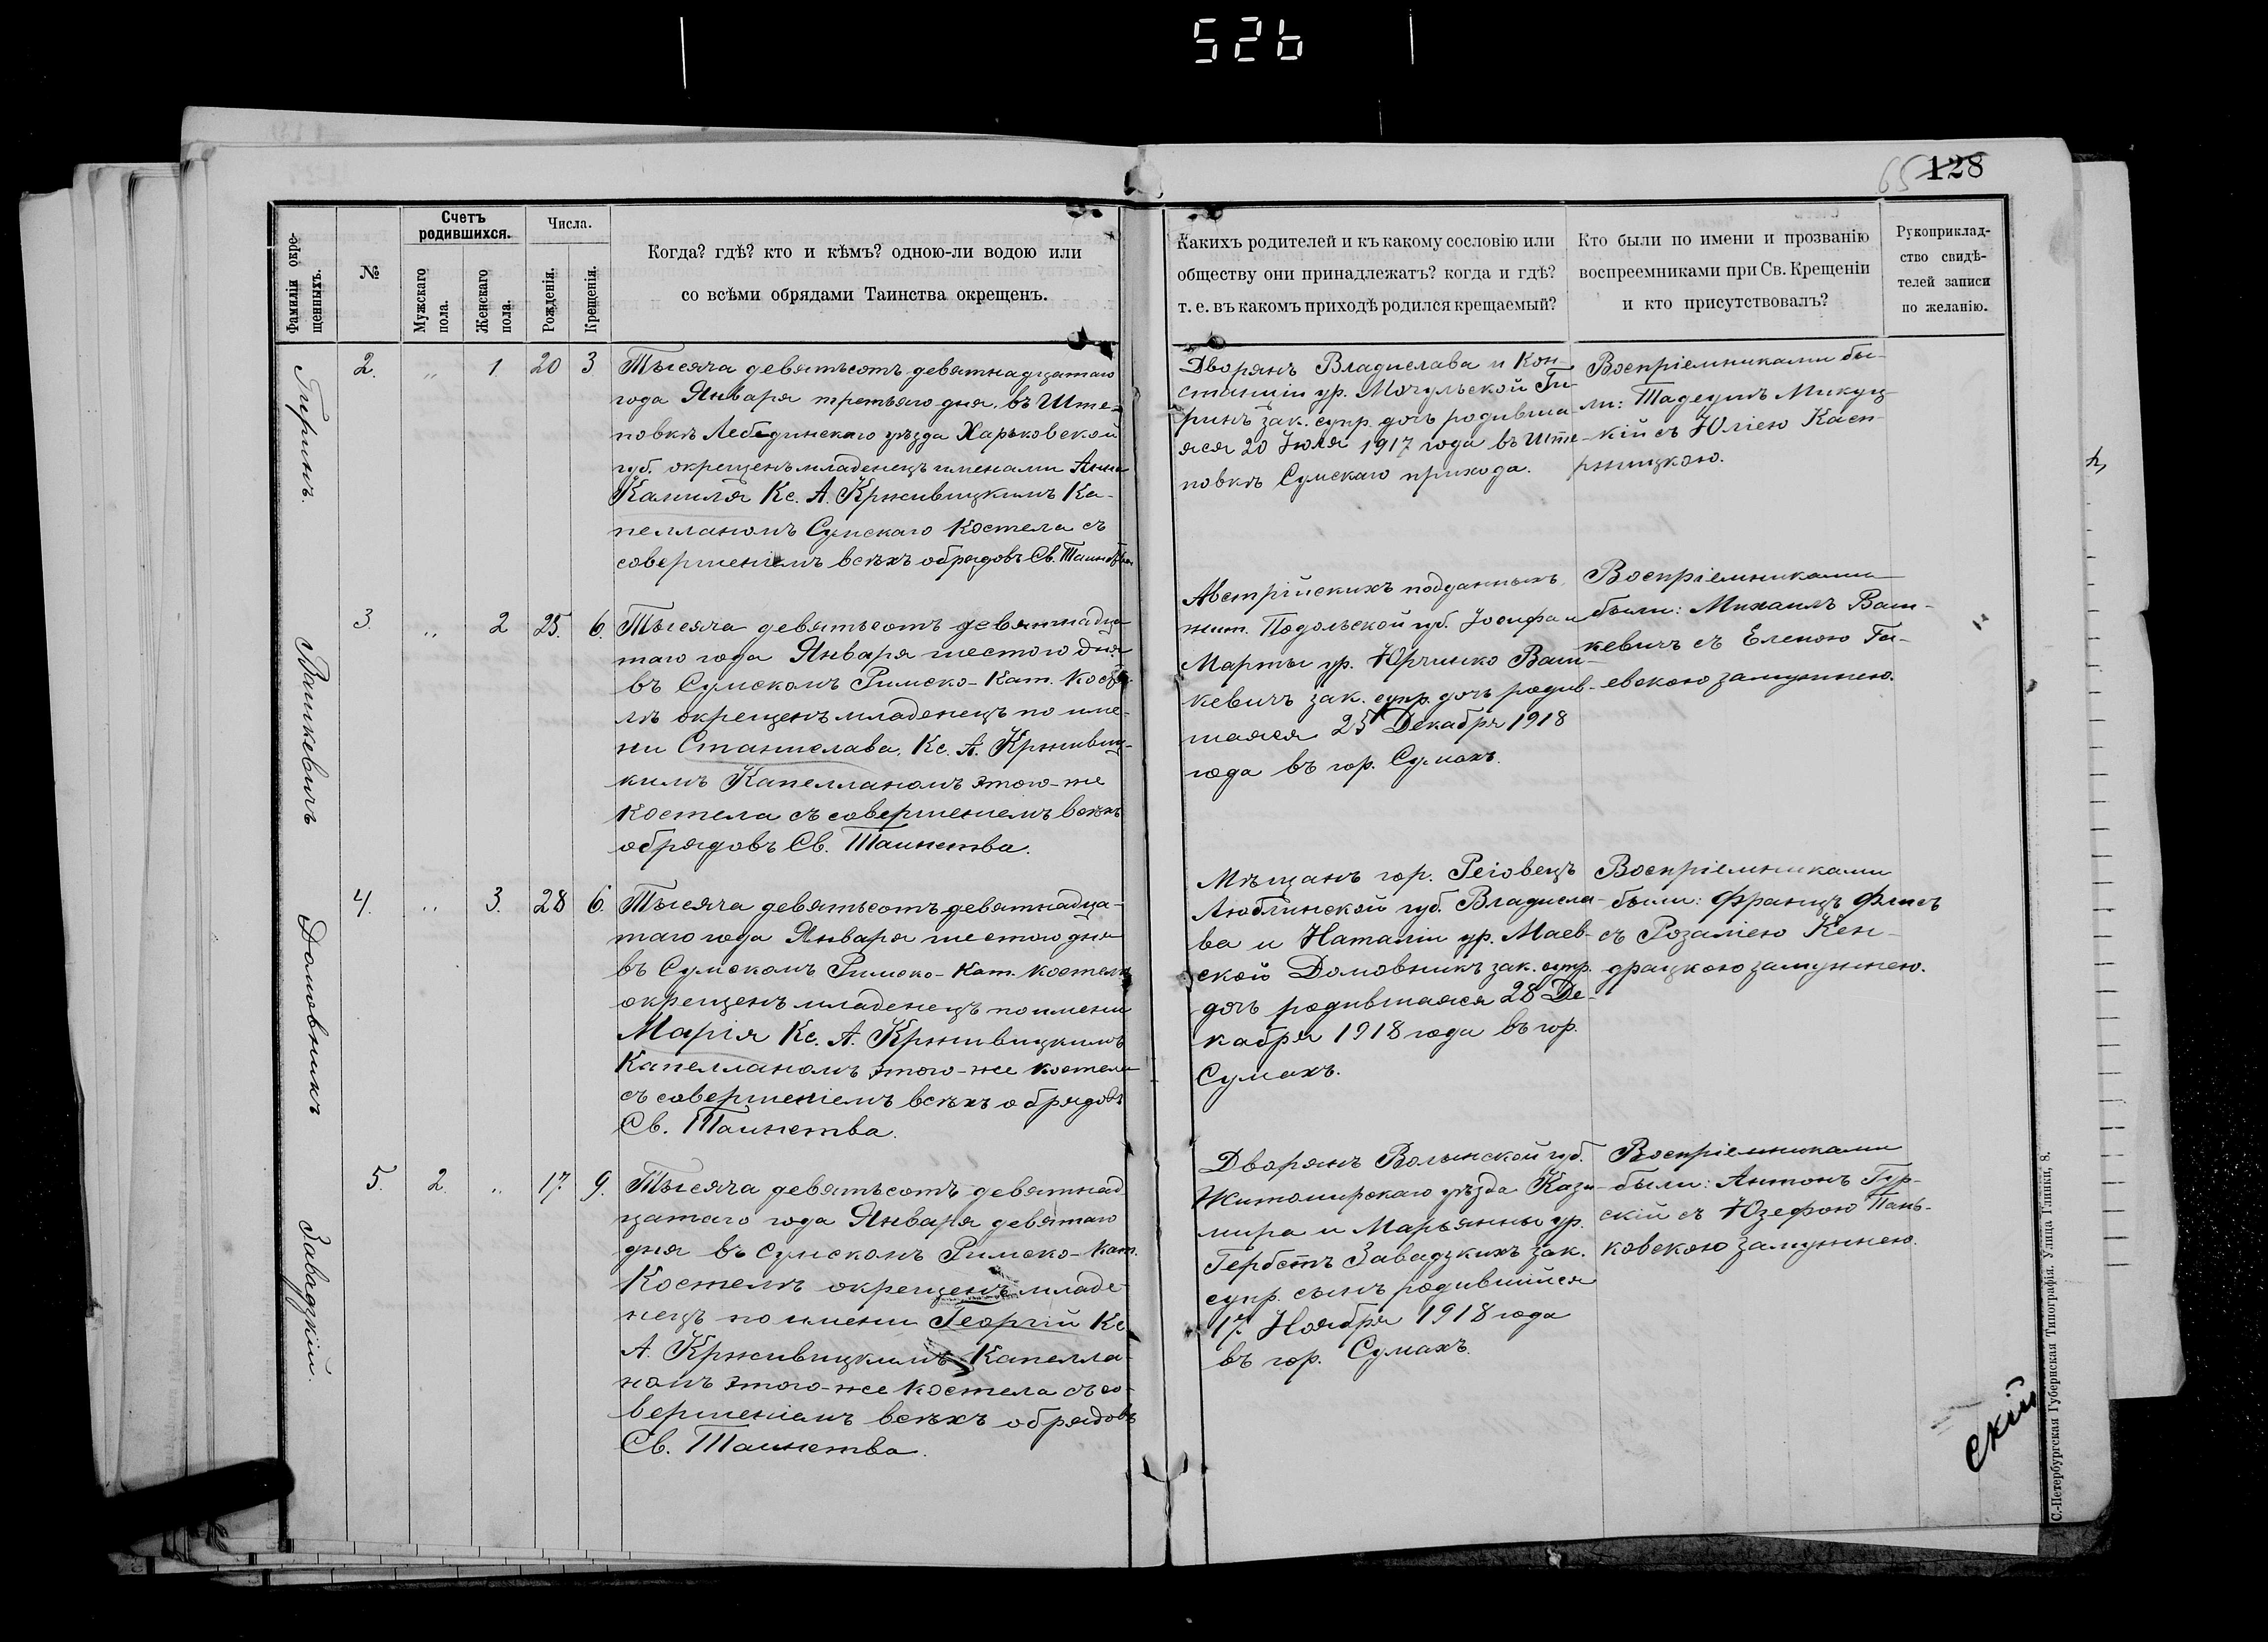 526
65 128
Фамиліи окре-
щенныхъ.
№
Счетъ
родившихся.
Мужскаго
пола.
Женскаго
пола.
Числа.
Рожденія.
Крещенія.
Когда? гдѣ? кто и кѣмъ? одною-ли водою или
со всѣми обрядами Таинства окрещенъ.
Какихъ родителей и къ какому сословію или
обществу они принадлежатъ? когда и гдѣ?
т. е. въ какомъ приходѣ родился крещаемый?
Кто были по имени и прозванію
воспреемниками при Св. Крещеніи
и кто присутствовалъ?
Рукоприклад-
ство свидѣ-
телей записи
по желанію.
Гиринъ.
2. " 1 20 3
Тысяча девятьсотъ девятнадцатаго
года Января третьяго дня, въ Ште-
повкѣ Лебединскаго уѣзда Харьковской
губ. окрещенъ младенецъ именами Анна
Камиля Кс. А. Крживицкимъ Ка-
пелланомъ Сумскаго Костела съ
совершеніемъ всѣхъ обрядовъ Св. Таинства
Дворянъ Владислава и Кон-
станціи ур. Мочульской Ги-
ринъ зак. супр. дочь родивша-
яся 20 Іюля 1917 года въ Ште-
повкѣ Сумскаго прихода.
Воспріемниками бы-
ли: Тадеушъ Микуц-
кій съ Юліею Касп-
ржицкою.
Вашкевичъ
3. " 2 25. 6.
Тысяча девятьсотъ девятнадца-
таго года Января шестого дня
въ Сумскомъ Римско-Кат. Косте-
лѣ окрещенъ младенецъ по име-
ни Станислава, Кс. А. Крживиц-
кимъ Капелланомъ этого-же
Костела съ совершеніемъ всѣхъ
обрядовъ Св. Таинства.
Австрійскихъ подданныхъ
жит. Подольской губ. Іосифа и
Марты ур. Юрчишко Ваш-
кевичъ зак. супр. дочь родив-
шаяся 25 Декабря 1918
года въ гор. Сумахъ.
Воспріемниками
были: Михаилъ Ваш-
кевичъ съ Еленою Га-
евскою замужнею.
Домовникъ
4. " 3. 28 6.
Тысяча девятьсотъ девятнадца-
таго года Января шестого дня
въ Сумскомъ Римско-Кат. костелѣ
окрещенъ младенецъ по имени
Марія Кс. А. Крживицкимъ
Капелланомъ этого-же костела
съ совершеніемъ всѣхъ обрядовъ
Св. Таинства.
Мѣщанъ гор. Реіовецъ
Люблинской губ. Владисла-
ва и Наталіи ур. Маев-
ской Домовникъ зак. супр.
дочь родившаяся 28 Де-
кабря 1918 года въ гор.
Сумахъ.
Воспріемниками
были: Францъ Флисъ
съ Розаліею Кен-
драцкою замужнею.
Завадзкій.
5. 2. " 17. 9.
Тысяча девятьсотъ девятнад
цатаго года Января девятаго
дня въ Сумскомъ Римско-Кат.
Костелѣ окрещенъ младе
нецъ по имени Георгій Кс
А. Крживицкимъ Капелла-
номъ этого-же Костела съ со-
вершеніемъ всѣхъ обрядовъ
Св. Таинства.
Дворянъ Волынской губ.
Житомирскаго уѣзда Кази-
мира и Марьянны ур.
Гербстъ Завадзкихъ зак.
супр. сынъ родившійся
17 Ноября 1918 года
въ гор. Сумахъ.
Воспріемниками
были: Антонъ Гур-
скій съ Юзефою Пань-
ковскою замужнею.
скій
С.-Петербургская Губернская Типографія. Улица Глинки, 8.